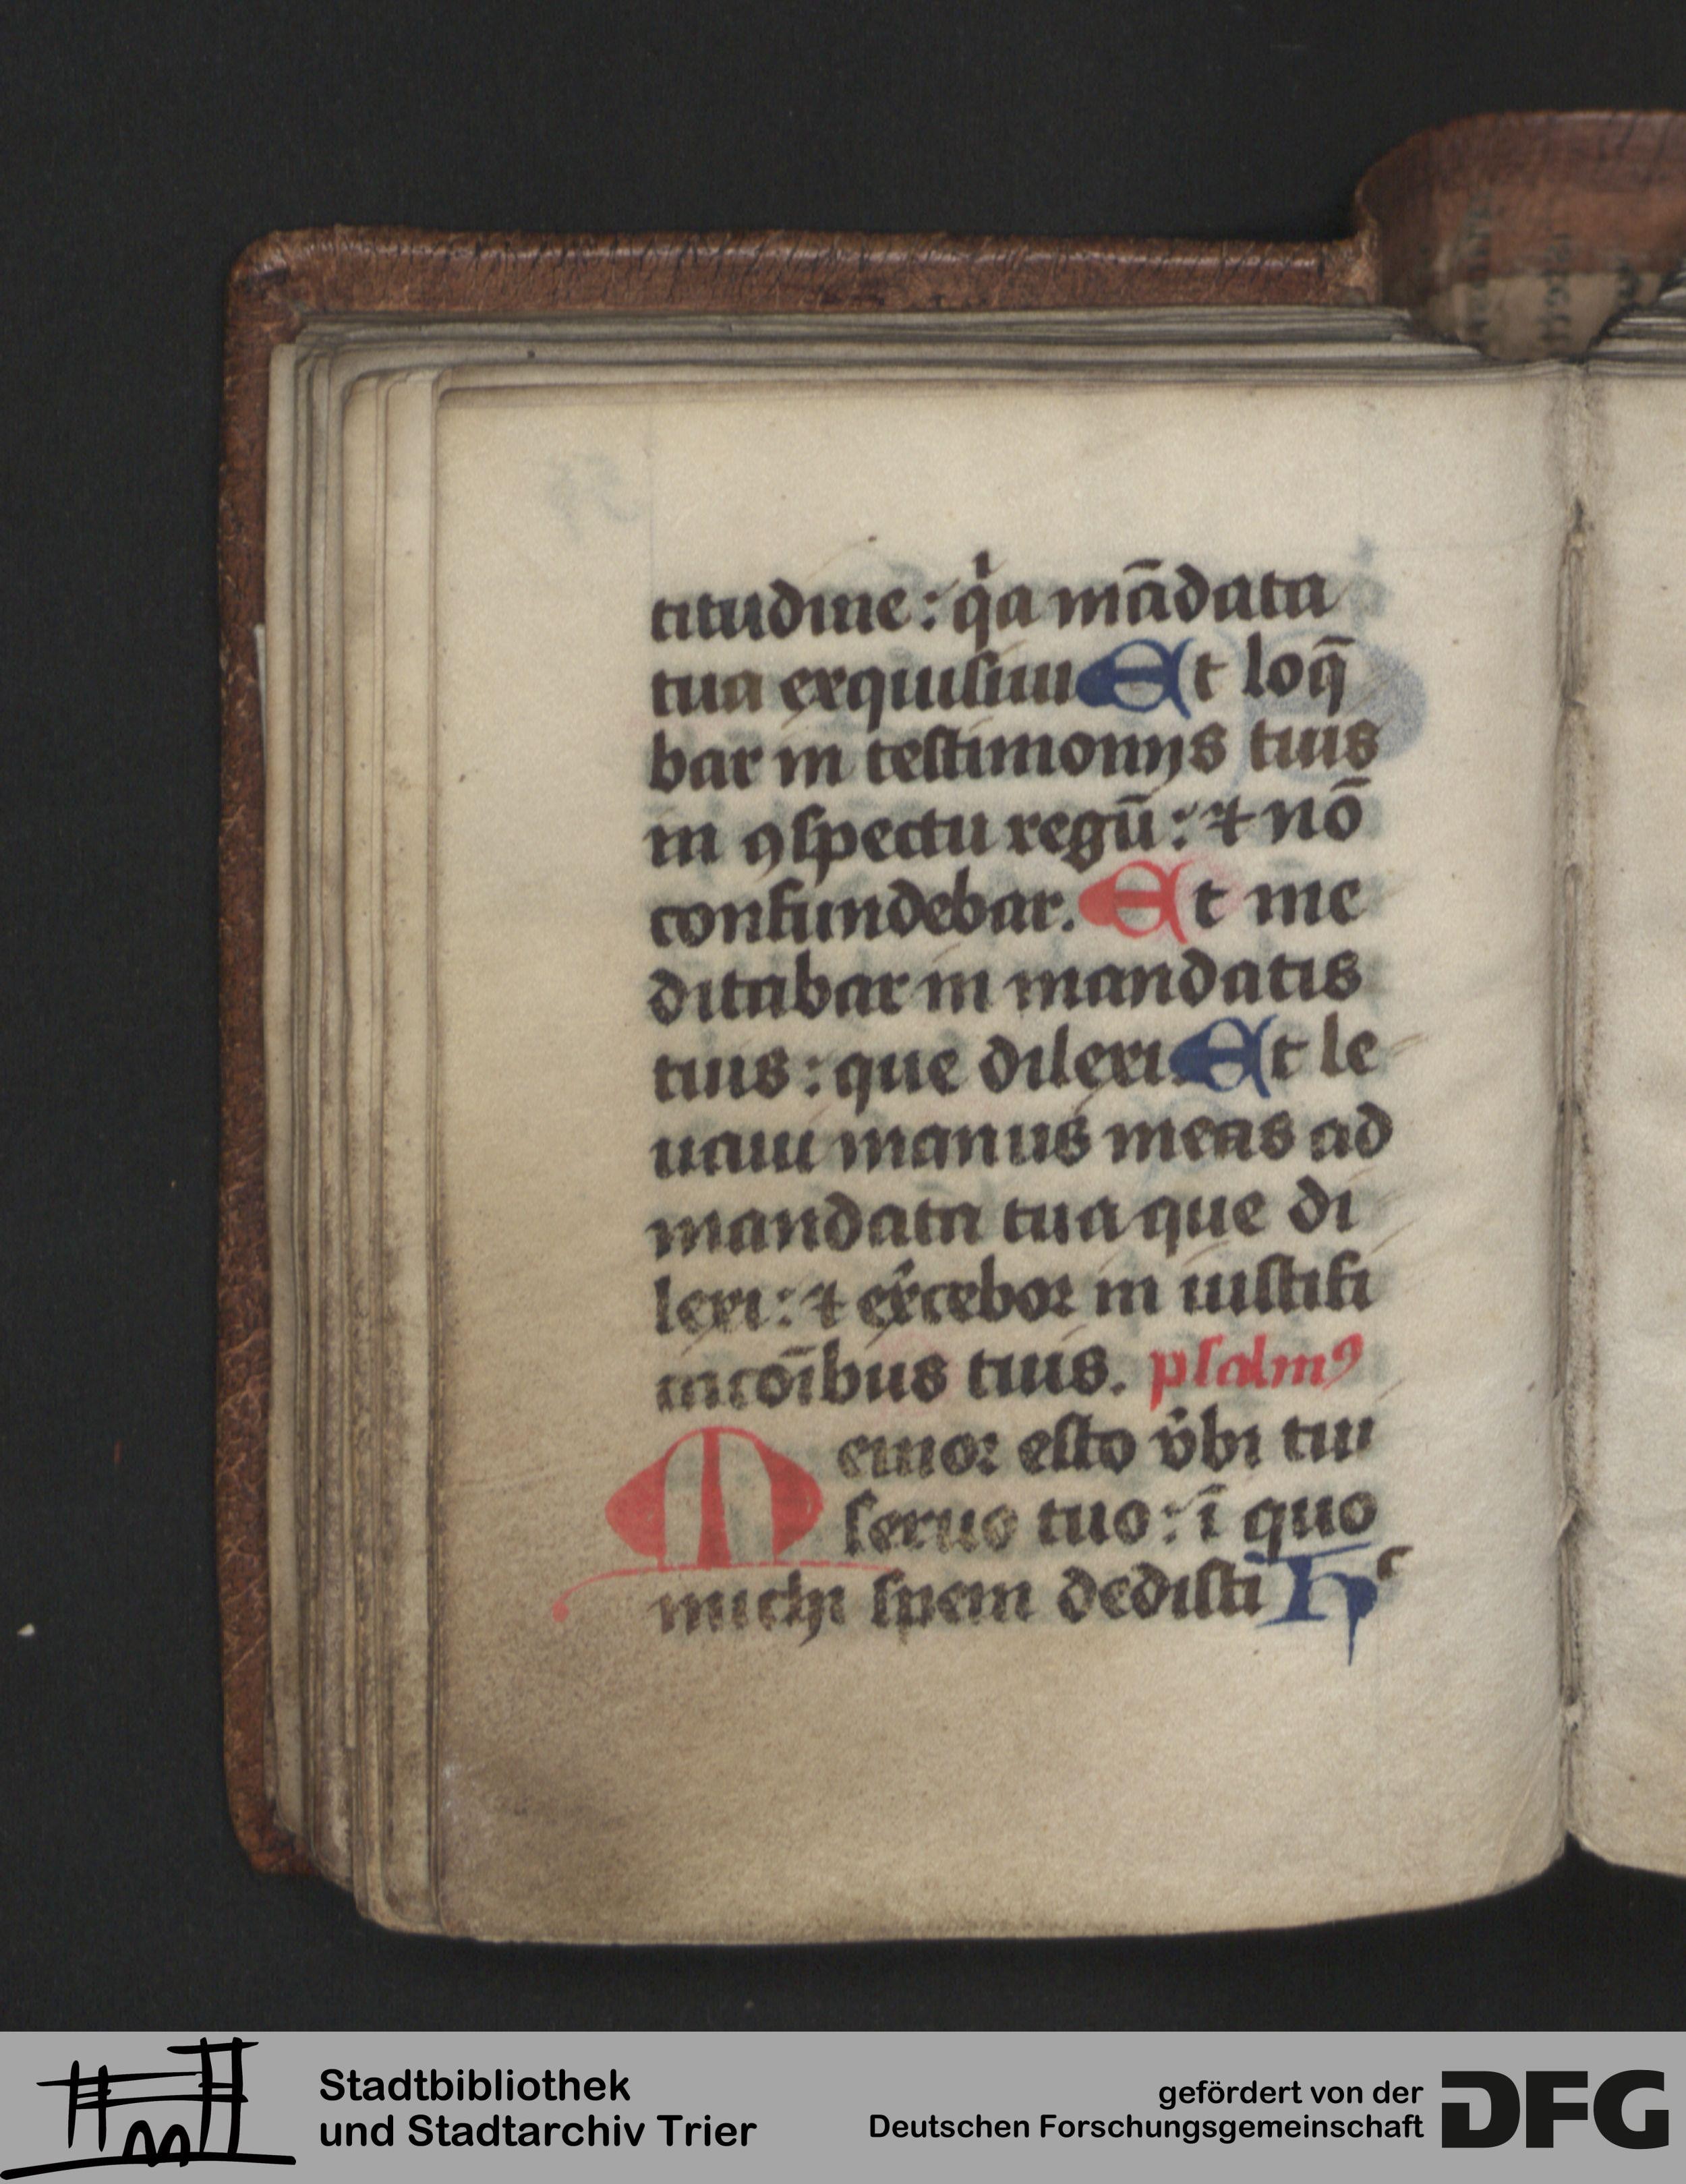 titudine : qͥa mādata
tua exquisiui Et loq̄
bar in testimonijs tuis
in ꝯspectu regū : ⁊ nō
confundebar. Et me
ditabar in mandatis
tuis : que dilexi. Et le
uaui manus meas ad
mandata tua que di
lexi : ⁊ ex̛cebor in iustifi
cacōibus tuis. psalmꝯ
Memor esto v̛bi tui
seruo tuo : ī quo
michi spem dedisti Hc
Stadtbibliothek
und Stadtarchiv Trier
gefördert von der
Deutschen Forschungsgemeinschaft
DFG